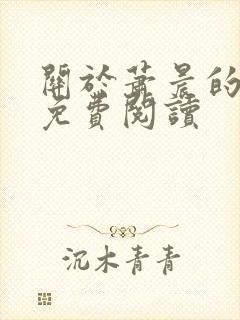 關於蕭景的
免費閱讀
沉木青青